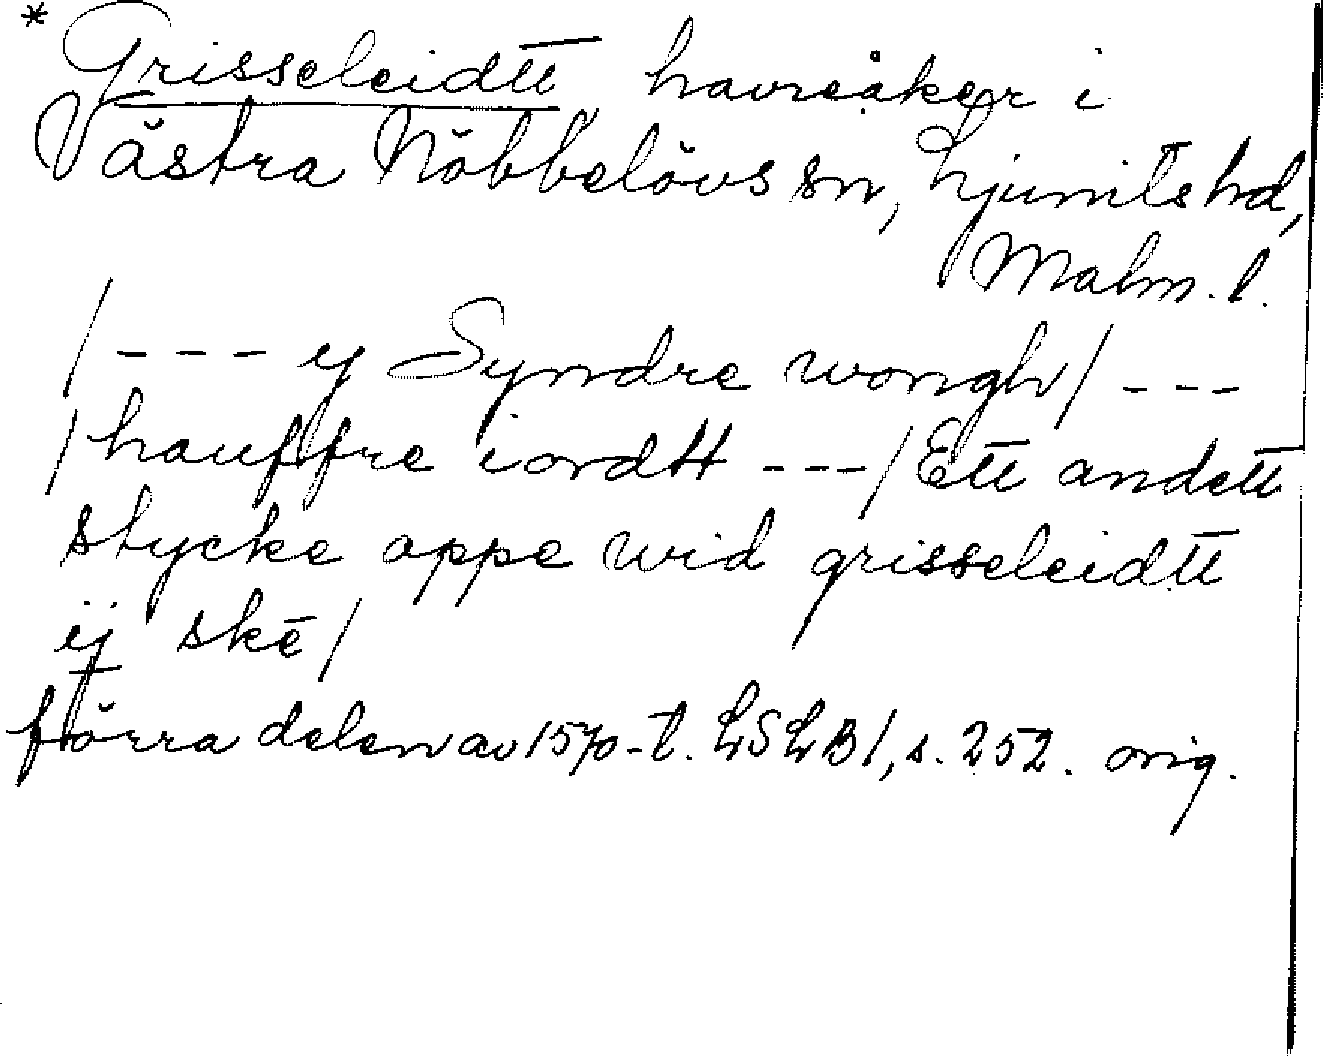 * Grisseleidtt havreåker i
Västra Nöbbelövs sn, Ljunits hd,
Malm. l.
/ --- y Syndre wongh / ---
/ hauffre iordtt --- / Ett andett
stycke oppe wid grisseleidtt
ij skē /
förra delen av 1570-t. LSLB 1, s. 252. orig.